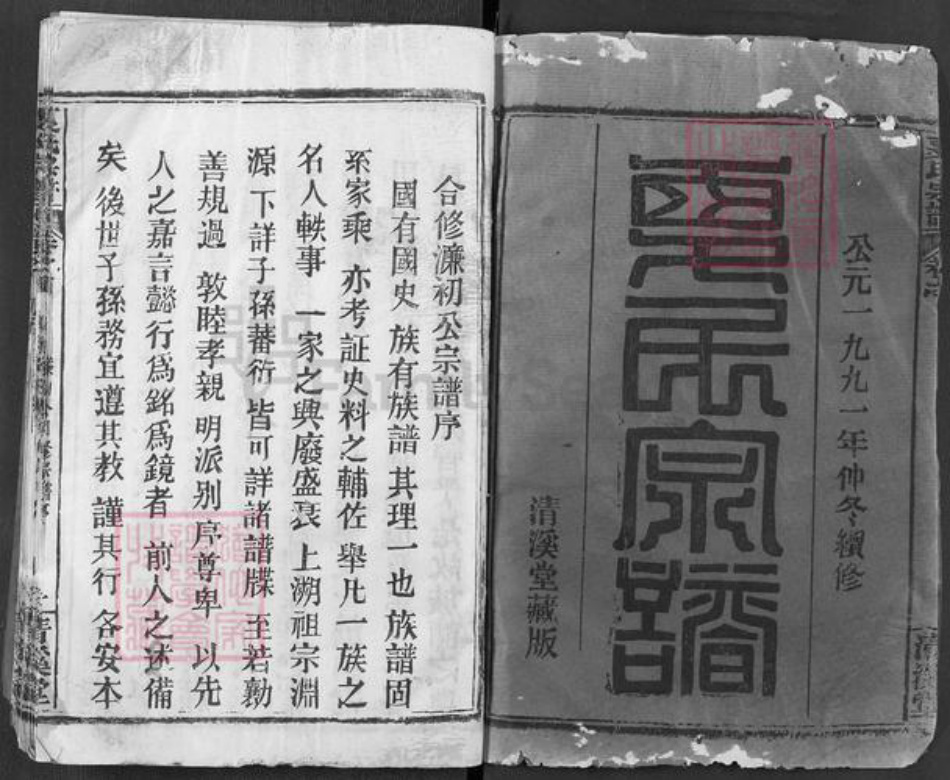 公元一九九一年仲冬續修
氏宗譜
清溪堂藏版
合修濂初公宗譜序
國有國史 族有族譜 其理一也 族譜固
系家乘 亦考証史料之輔佐 舉凡一族之
名人軼事 一家之興廢盛衰 上溯祖宗淵
源 下詳子孫蕃衍 皆可詳諸譜牒 至若勸
善規過 敦睦孝親 明派别序尊卑 以先
人之嘉言懿行爲銘爲鏡者 前人之述備
矣 後世子孫務宜遵其教 謹其行 各安本